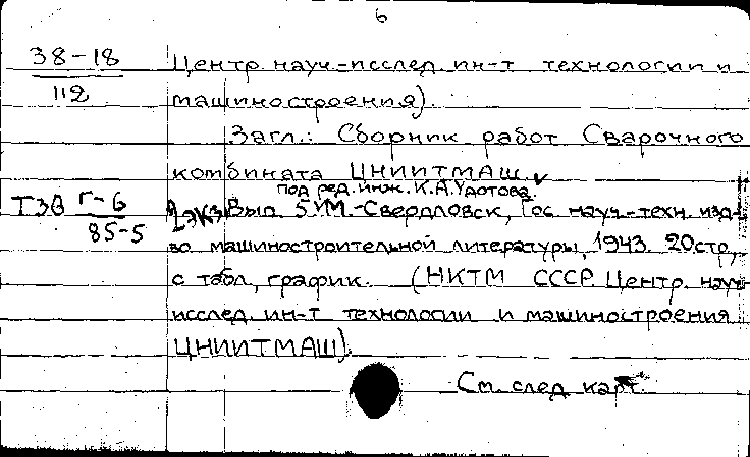 6
38-18 Центр. науч.-исслед. ин-т технологии и
112 машиностроения).
Загл.: Сборник работ Сварочного
комбината ЦНИИТМАШ.
под ред. инж. К.А. Удотова.
ТЗВ Г-6 2экз Вып. 5 М.-Свердловск, Гос. науч.-техн. изд-
85-5 во машиностроительной литературы, 1943. 20 стр.,
с табл., график. (НКТМ СССР. Центр. науч-
исслед. ин-т технологии и машиностроения
ЦНИИТМАШ).
См. след. карт.